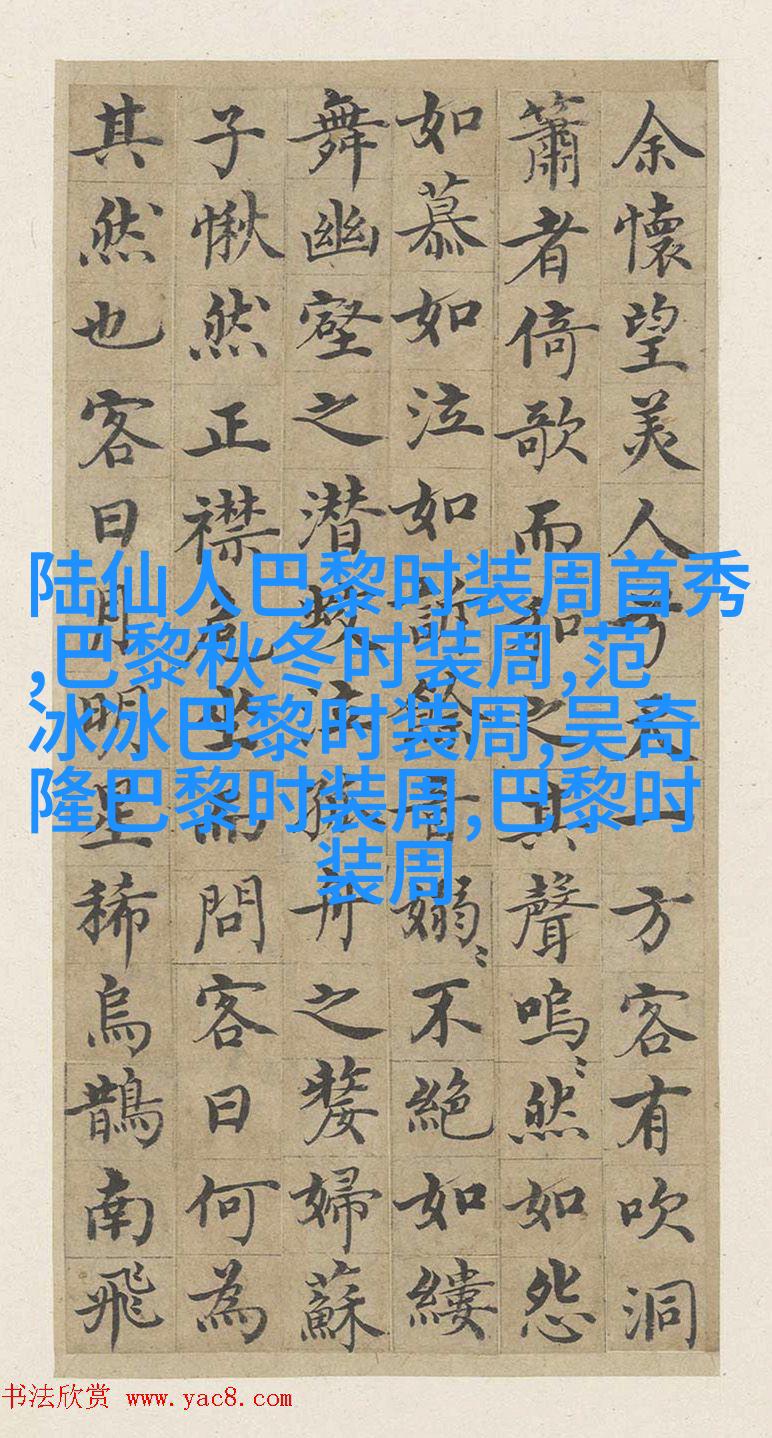 余懷望美人兮天一方客有吹洞
簫者倚歌而和之其聲嗚〻然如怨
如慕如泣如訴餘音嫋〻不絕如縷
舞幽壑之潛蛟泣孤舟之嫠婦蘇
子愀然正襟危坐而問客曰何為
其然也客曰月明星稀烏鵲南飛
陆仙人巴黎时装周首秀
,巴黎秋冬时装周,范
冰冰巴黎时装周,吴奇
隆巴黎时装周,巴黎时
装周
书法欣赏 www.yac8.com